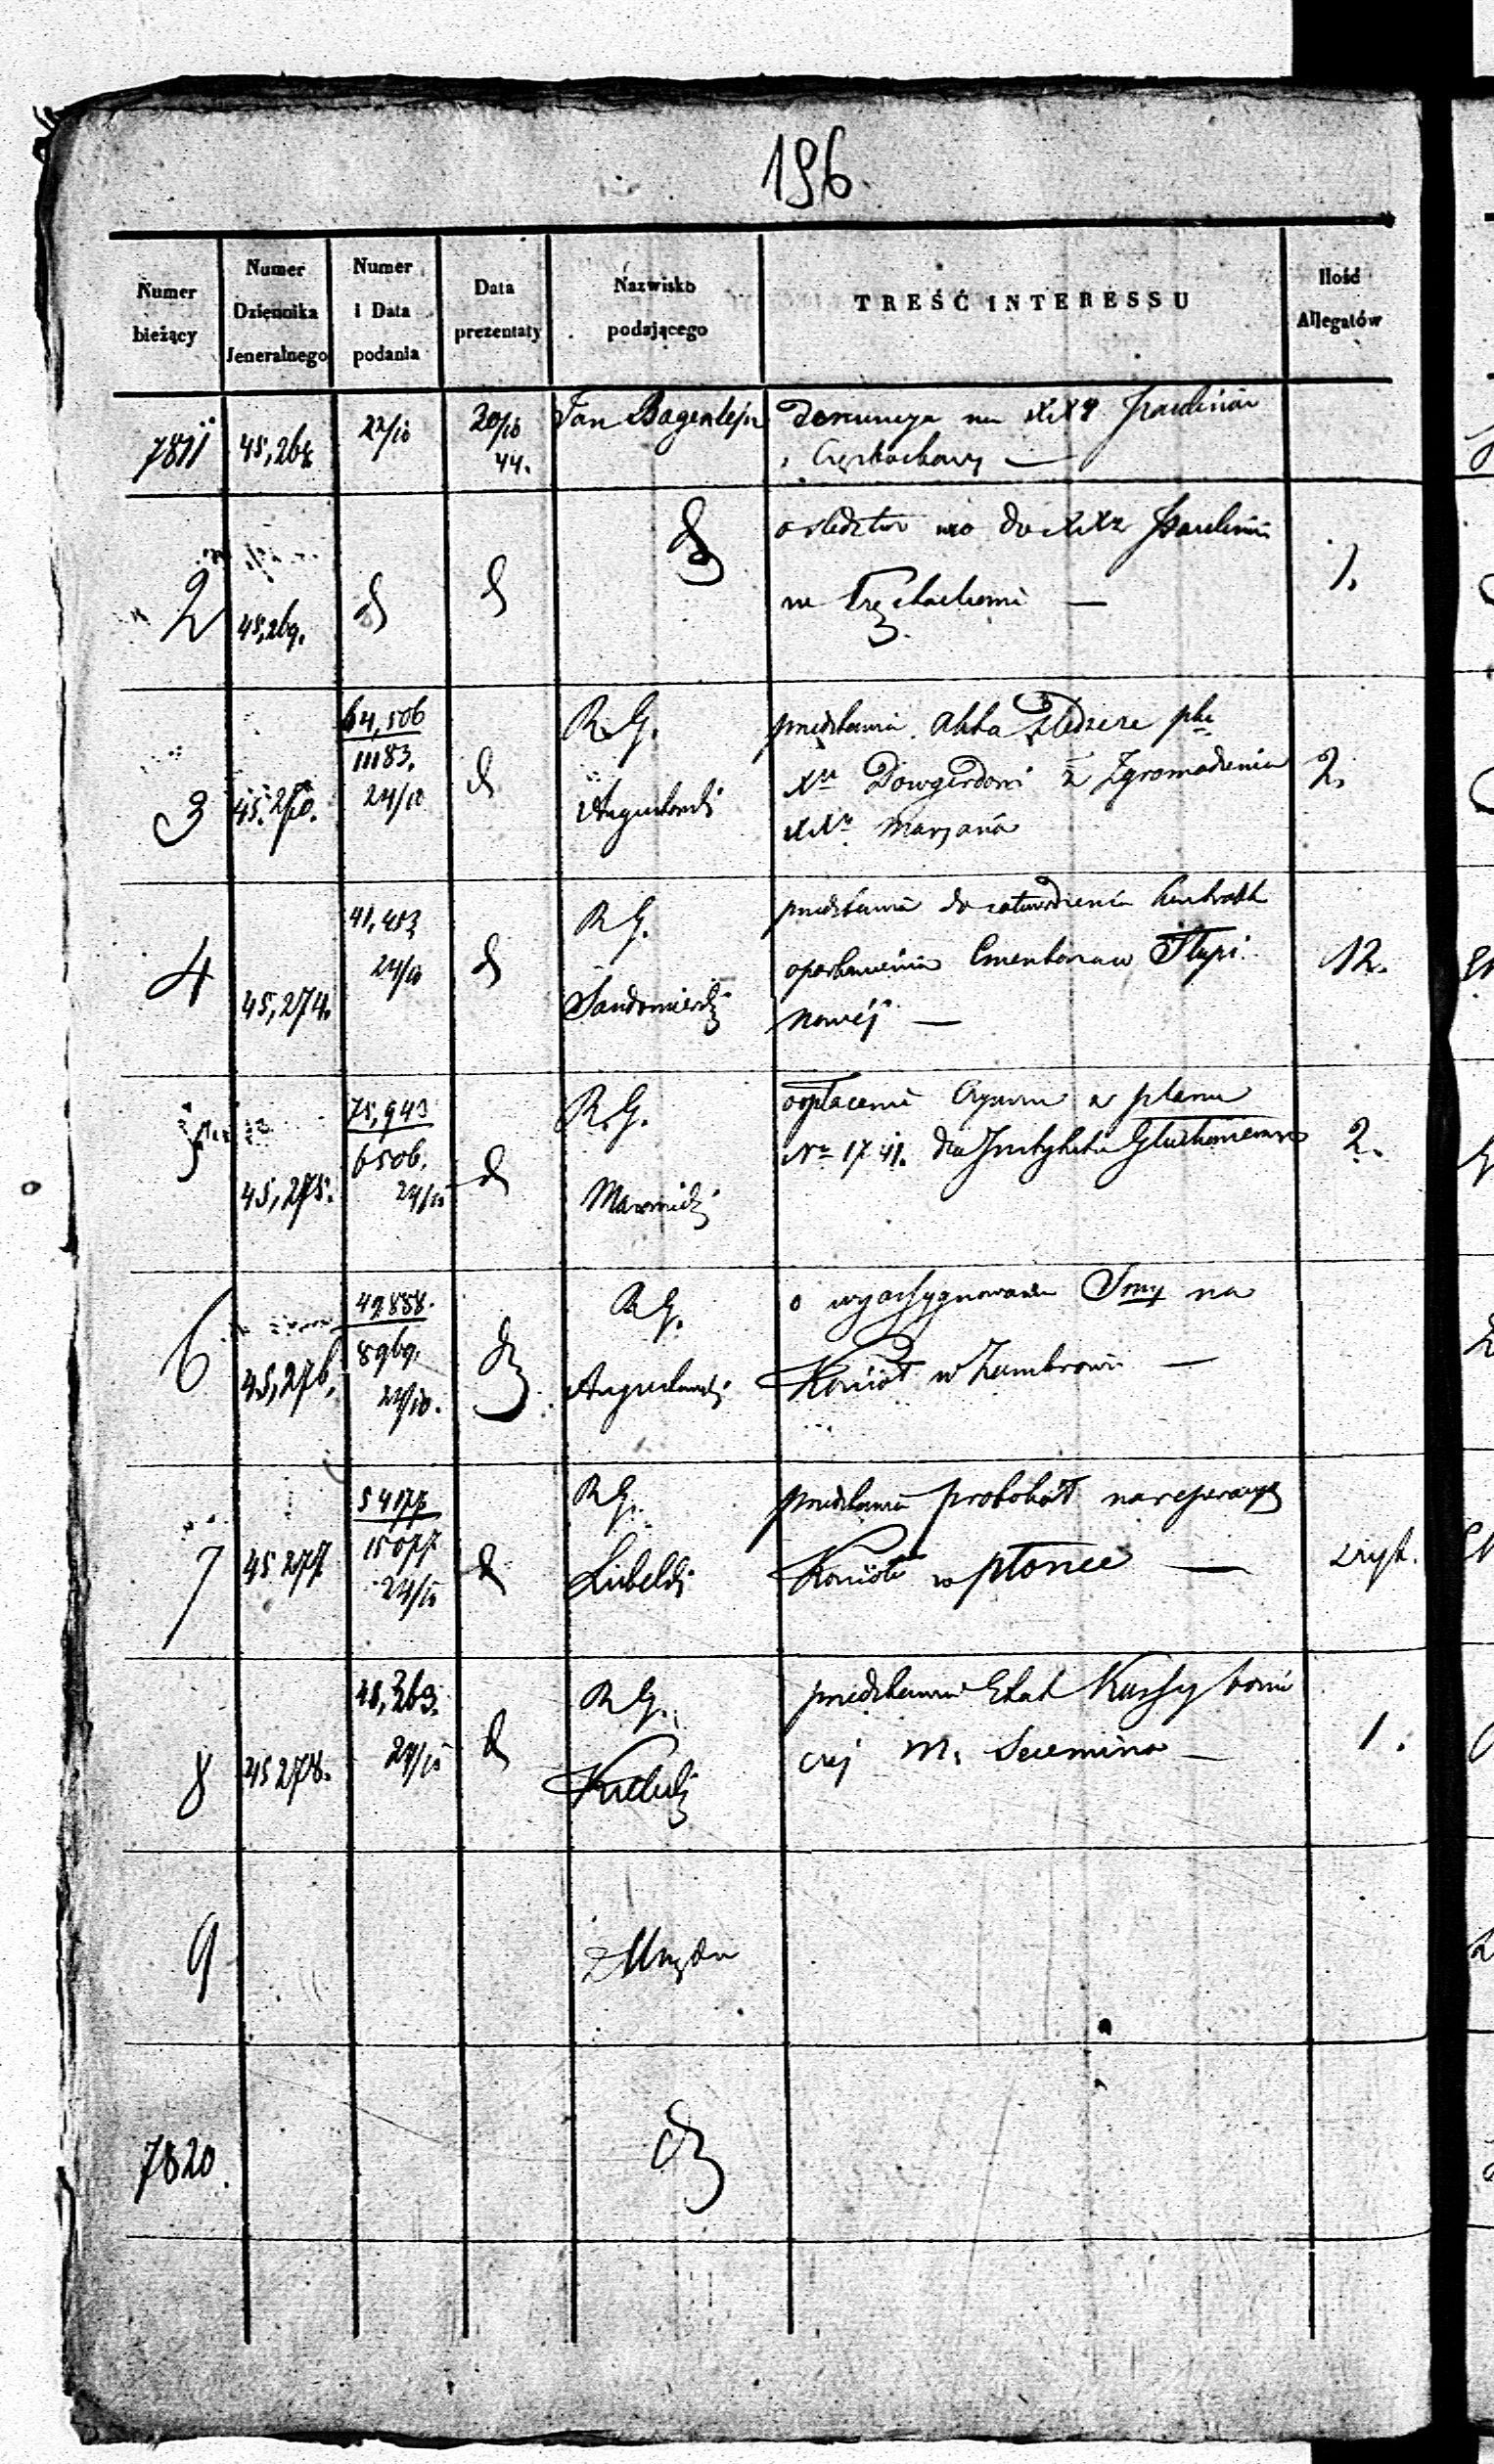 196.
Numer bieżący
Numer Dziennika Jeneralnego
Numer i Data podania
Data prezentaty
Nazwisko podającego
TREŚĆ INTERESSU
Ilość Allegatów
7811 45,268 22/10 30/10 44. Jan Denuncya na
z Częstochowy —
2 45,269. d d d o śledztwo do
w Częstochowie — 1.
3 45.270. 64,506 11183. 24/10 d R. G. Augustowski przedstawia Akta śledcze
Dowgirdowi z Zgromadzenia
Maryanów 2.
4 45,274. 41,453 24/10 d R. G. Sandomierski przedstawia do zatwierdzenia
Cmentarza w Słupi
Nowéj — 12.
45,275. 75,943 6506. 24/10 d R. G. Mazowiecki opłacenie Czynszu z placu
No 1741. dla Instytutu Głuchoniemych 2.
6 45,276. 49858. 8969. 24/10. d R. G. Augustowski o wyassygnowanie Smy na
Kościół w Zambrowie —
7 45277 54177 15077 24/10 d R. G. Lubelski przedstawia protokół
Kościoła w Płonce — zszyt.
8 45278. 48,263. 24/10 d R. G. Kielecki przedstawia Etat Kassy
czéj M. Secemina — 1.
9 z Urzędu
7820. d